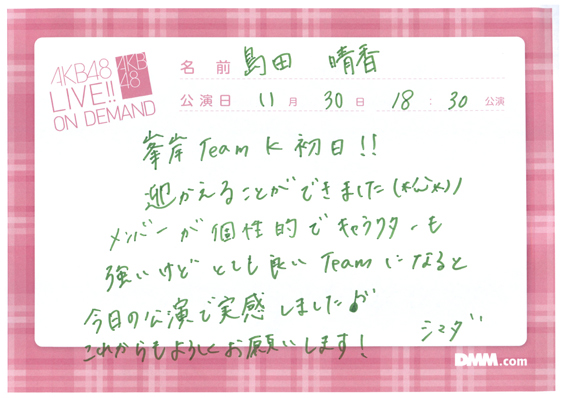 AKB48
LIVE!!
ON DEMAND
AKB
48
名 前 島田 晴香
公演日 11月 30日 18:30 公演
峯岸 Team K 初日!!
迎かえることができました(*^^*)ノ
メンバーが個性的でキャラクターも
強いけど とても良い Team になると
今日の公演で実感しました♪
これからもよろしくお願いします!
シマダ
DMM.com